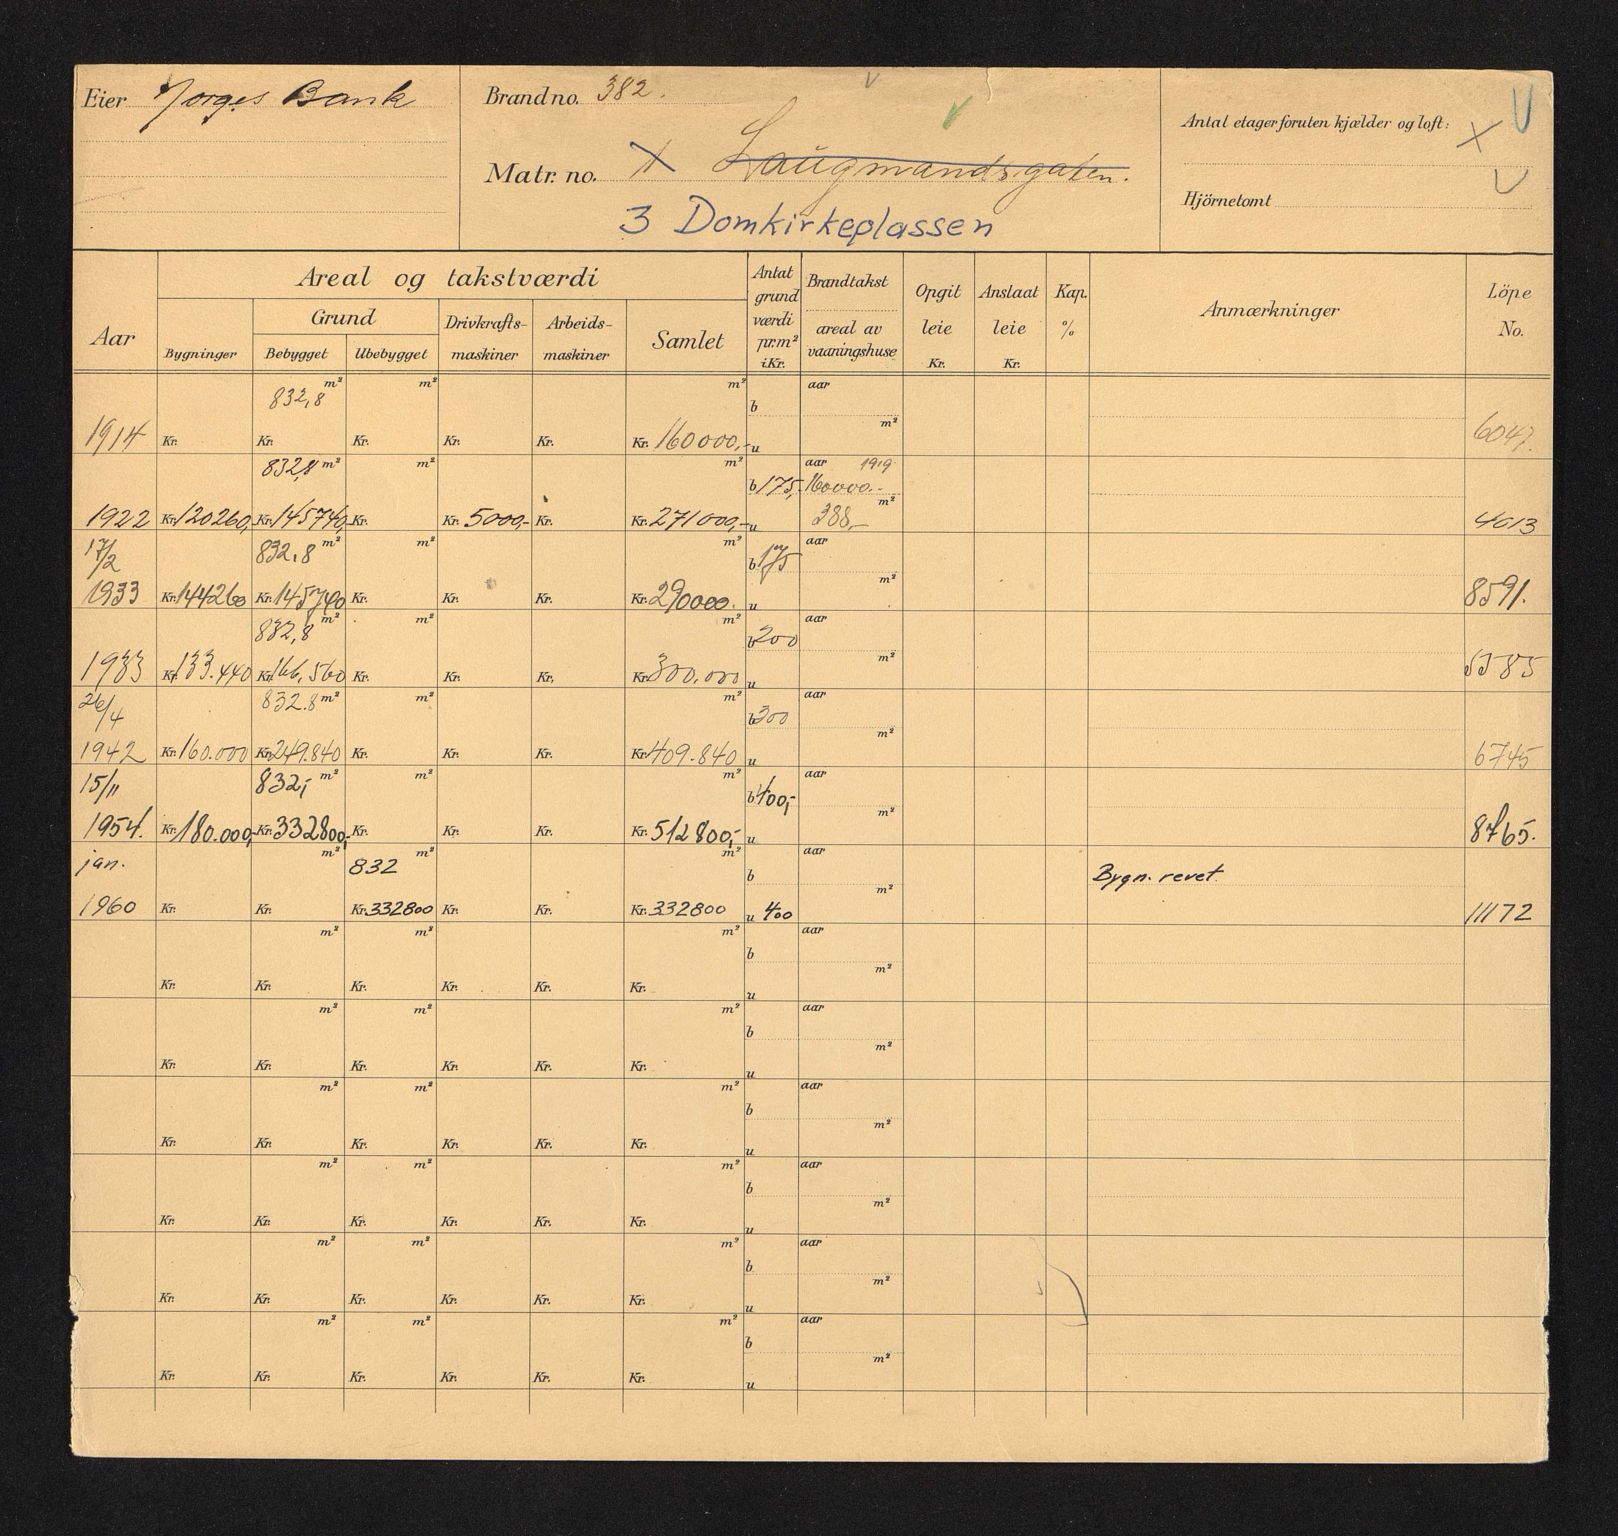 Eier Norges Bank
Brand no. 382.
Matr. no. Laugmandsgaten.
3 Domkirkeplassen
Antal etager foruten kjælder og loft:
Hjörnetomt
Aar
Areal og takstværdi
Bygninger
Grund
Bebygget
Ubebygget
Drivkrafts-
maskiner
Arbeids-
maskiner
Samlet
Antat
grund
værdi
pr. m²
i Kr.
Brandtakst
areal av
vaaningshuse
Opgit
leie
Kr.
Anslaat
leie
Kr.
Kap.
%
Anmærkninger
Löpe
No.
832,8 m² m² m² b aar
1914 Kr. Kr. Kr. Kr. Kr. Kr. 160000,- u m² 6047.
832,8 m² m² m² b 175,- aar 1919
160000.-
1922 Kr. 120260,- Kr. 145740,- Kr. Kr. 5000,- Kr. Kr. 271000,- u m² 288,- 4013
17/2 832,8 m² m² m² b 175 aar
1933 Kr. 144260 Kr. 145740 Kr. Kr. Kr. Kr. 290000. u m² 8591.
832,8 m² m² m² b 200 aar
1933 Kr. 133.440 Kr. 166,560 Kr. Kr. Kr. Kr. 300,000 u m² 5385
26/4 832.8 m² m² m² b 300 aar
1942 Kr. 160.000 Kr. 249.840 Kr. Kr. Kr. Kr. 409.840 u m² 6745
15/11 832,- m² m² m² b 400,- aar
1954. Kr. 180.000,- Kr. 332800,- Kr. Kr. Kr. Kr. 512800,- u m² 8765.
jan. m² 832 m² m² b aar Bygn. revet.
1960 Kr. Kr. Kr. 332800 Kr. Kr. Kr. 332800 u 400 m² 11172
m² m² m² b aar
Kr. Kr. Kr. Kr. Kr. Kr. u m²
m² m² m² b aar
Kr. Kr. Kr. Kr. Kr. Kr. u m²
m² m² m² b aar
Kr. Kr. Kr. Kr. Kr. Kr. u m²
m² m² m² b aar
Kr. Kr. Kr. Kr. Kr. Kr. u m²
m² m² m² b aar
Kr. Kr. Kr. Kr. Kr. Kr. u m²
m² m² m² b aar
Kr. Kr. Kr. Kr. Kr. Kr. u m²